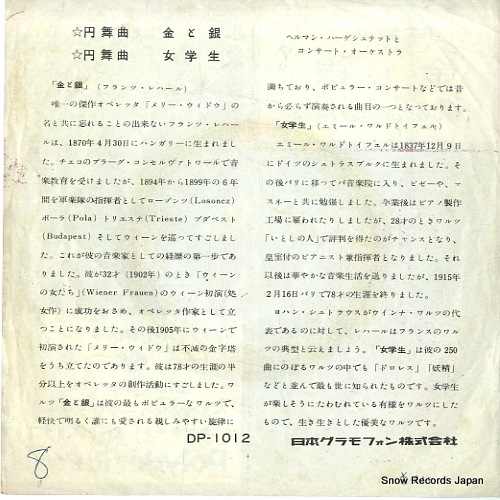 ☆円舞曲 金と銀
☆円舞曲 女学生
ヘルマン・ハーゲシュテットと
コンサート・オーケストラ
「金と銀」(フランツ・レハール)
唯一の傑作オペレッタ「メリー・ウィドウ」の
名と共に忘れることの出来ないフランツ・レハー
ルは、1870年4月30日にハンガリーに生まれまし
た。チェコのプラーグ・コンセルヴァトワールで音
楽教育を受けましたが、1894年から1899年の6年
間を軍楽隊の指揮者としてローゾンツ(Losoncz)
ポーラ(Pola)トリエステ(Trieste)ブダペスト
(Budapest)そしてウィーンを巡ってすごしまし
た。これが彼の音楽家としての経歴の第一歩であ
りました。彼が32才(1902年)のとき「ウィーン
の女たち」(Wiener Frauen)のウィーン初演(処
女作)に成功をおさめ、オペレッタ作家として立
つことになりました。その後1905年にウィーンで
初演された「メリー・ウィドウ」は不滅の金字塔
をうち立てたのであります。彼は78才の生涯の半
分以上をオペレッタの創作活動にすごしました。ワ
ルツ「金と銀」は彼の最もポピュラーなワルツで、
軽快で明るく誰にも愛される親しみやすい旋律に
満ちており、ポピュラー・コンサートなどでは昔
から必らず演奏される曲目の一つとなっております。
「女学生」(エミール・ワルドトイフェル)
エミール・ワルドトイフェルは1837年12月9日
にドイツのシュトラスブルクに生まれました。そ
の後パリに移ってパ音楽院に入り、ビゼーや、マ
スネーと共に勉強しました。卒業後はピアノ製作
工場に雇われたりしましたが、28才のときワルツ
「いとしの人」で評判を得たのがチャンスとなり、
皇室付のピアニスト兼指揮者となりました。それ
以後は華やかな音楽生活を送りましたが、1915年
2月16日パリで78才の生涯を終りました。
ヨハン・シュトラウスがウインナ・ワルツの代
表であるのに対して、レハールはフランスのワル
ツの典型と云えましょう。「女学生」は彼の250
曲にのぼるワルツの中でも「ドロレス」「妖精」
などと並んで最も世に知られたものです。女学生
が楽しそうにたわむれている有様をワルツにした
もので、生き生きとした優美なワルツです。
DP-1012 日本グラモフォン株式会社
8
Snow Records Japan